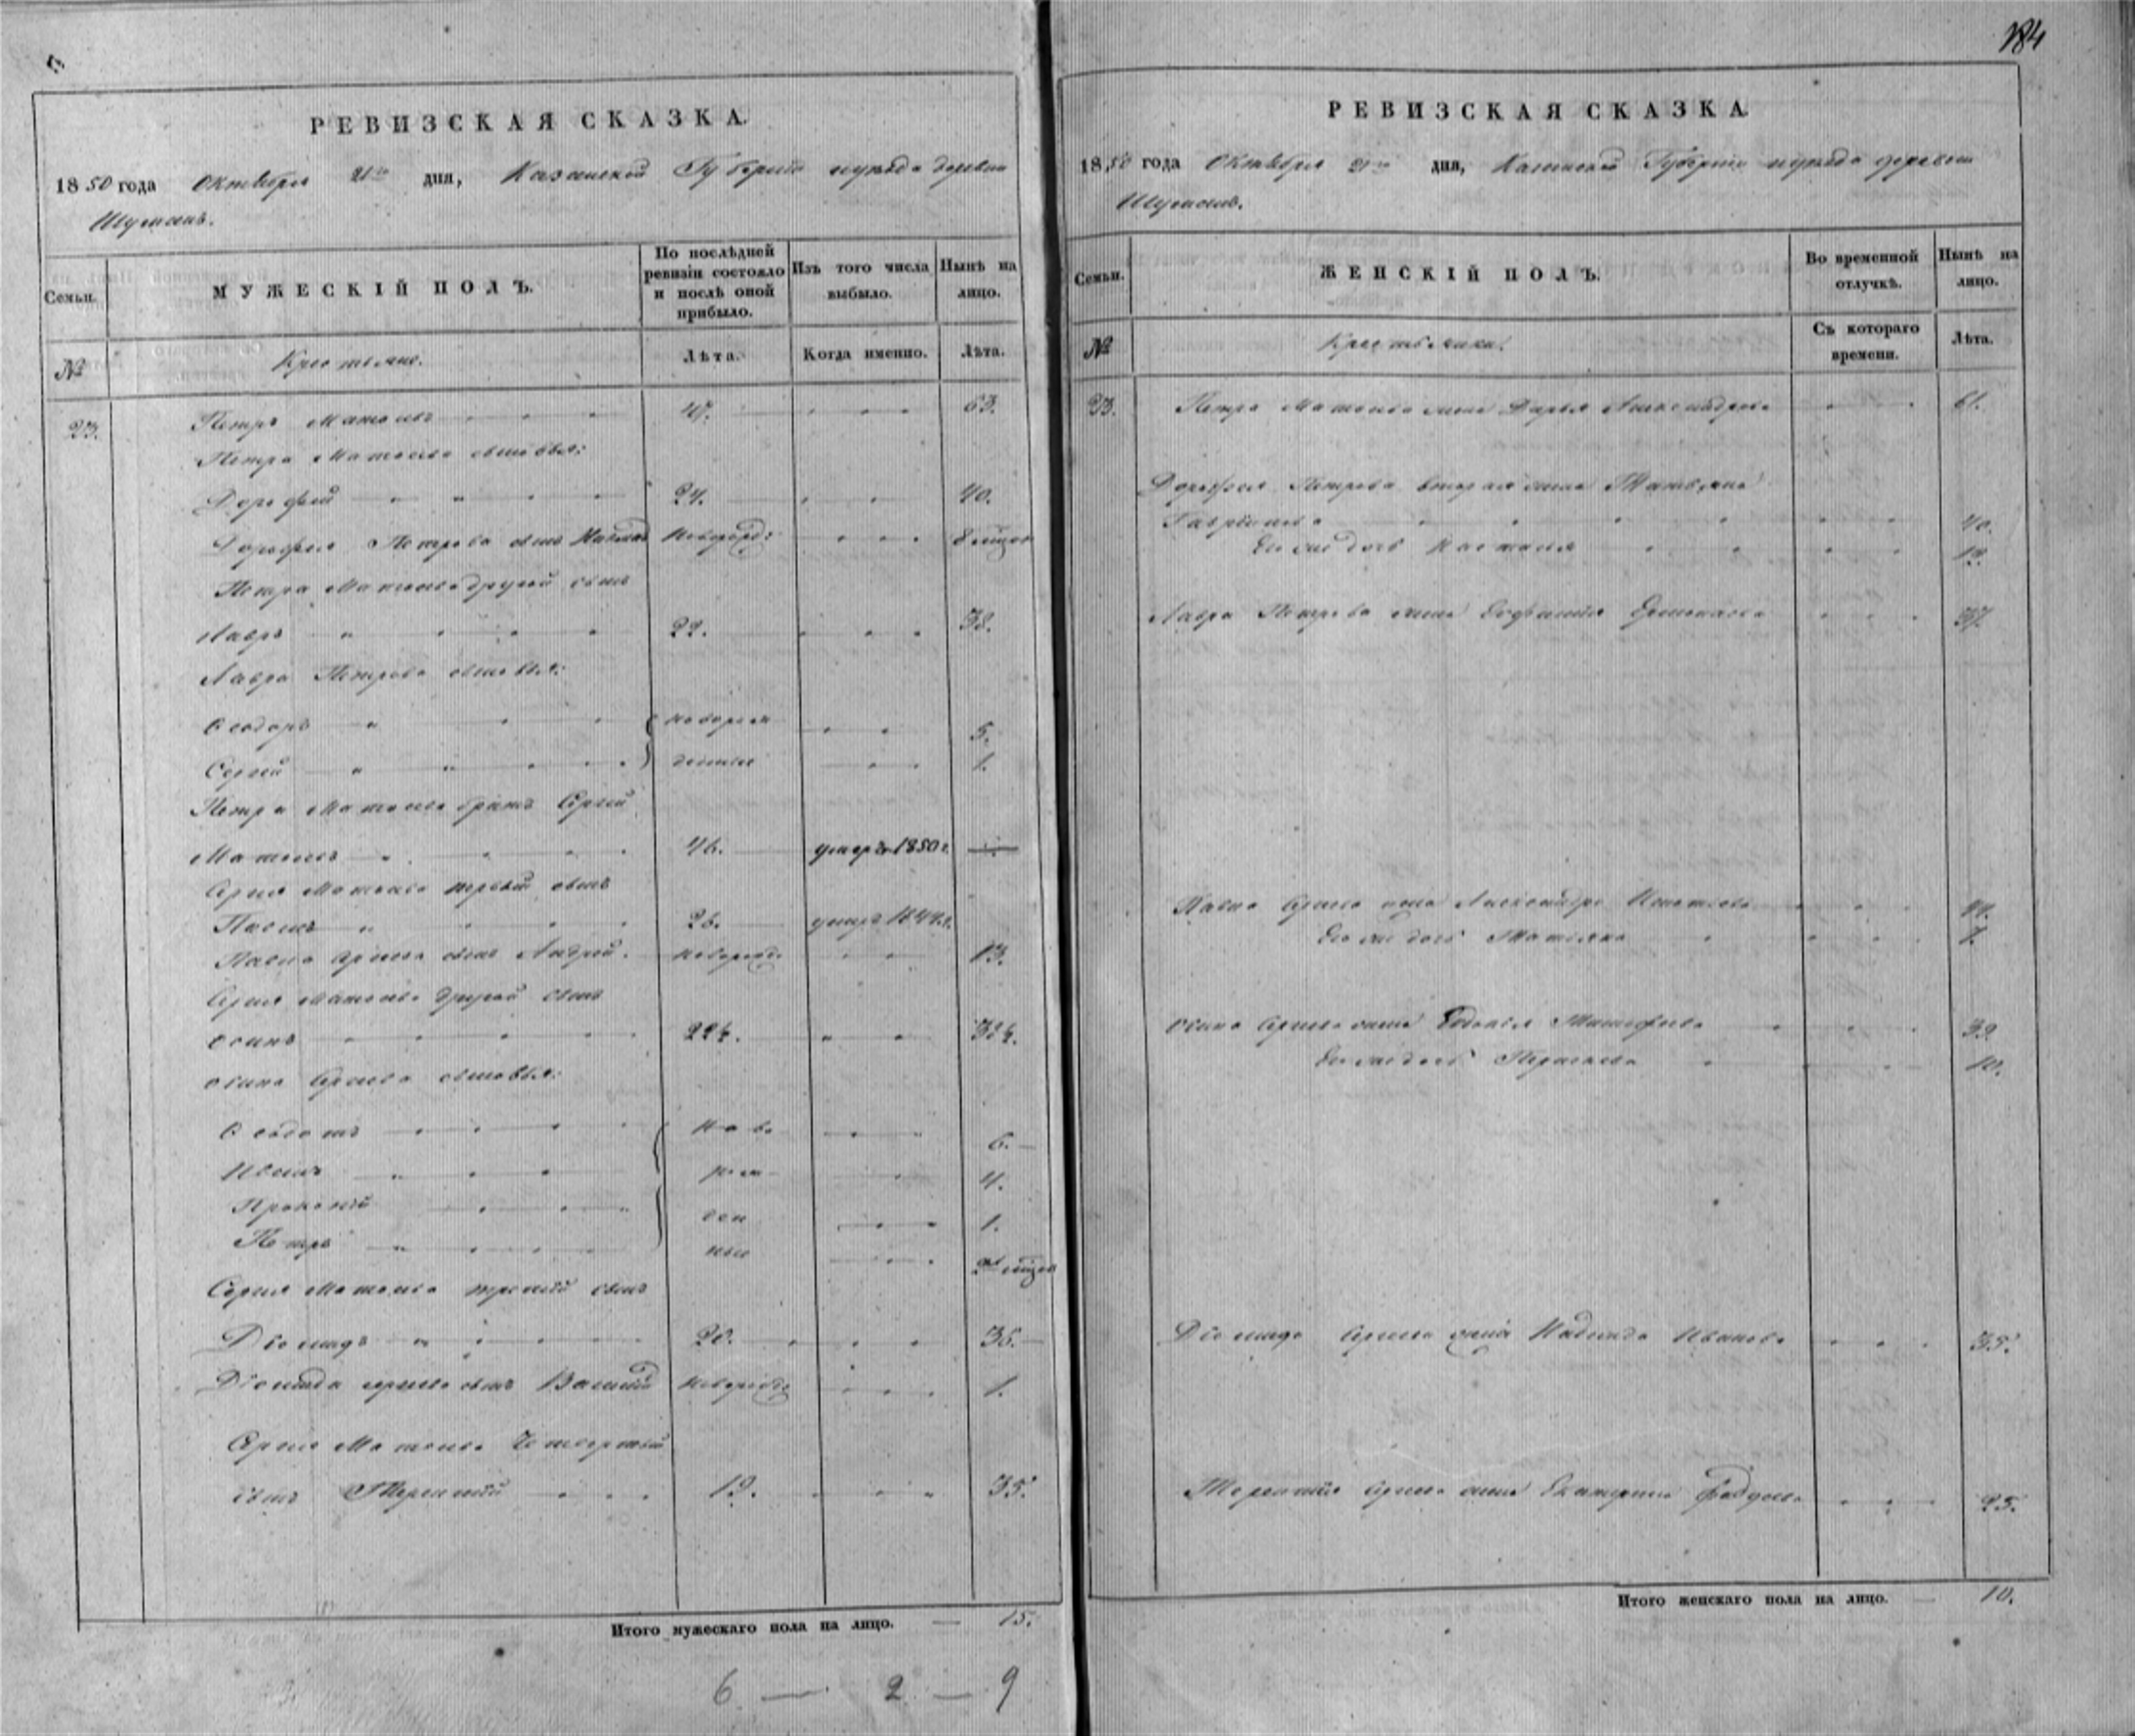 РЕВИЗСКАЯ СКАЗКА.
1850 года Октября 21го дня, Казанской Губернии уезда деревни
Семьи.
МУЖЕСКІЙ ПОЛЪ.
По послѣдней ревизіи состояло и послѣ оной прибыло.
Изъ того числа выбыло.
Нынѣ на лицо.
№
Крестьяне.
Лѣта.
Когда именно.
Лѣта.
23.
Петръ Матвѣевъ 47. 63.
Петра Матвѣева сыновья:
Дорофей 24. 40.
Дорофея Петрова сынъ новорожд: 8 мцов
Петра Матвѣева другой сынъ
Лавръ 22. 38.
Лавра Петрова сыновья:
Ѳеодоръ новорож 5.
Сергѣй денные 1.
Петра Матвѣева братъ Сергѣй
Матвѣевъ 46. умеръ 1850 г.
Сергѣя Матвѣева первый сынъ
Павелъ 26. умеръ 1844 г.
Павла Сергѣева сынъ Андрей новорожд 13.
Сергѣя Матвѣева другой сынъ
Осипъ 22½. 38½.
Осипа Сергѣева сыновья:
Ѳедотъ ново 6.
Иванъ рож 4.
Прокопій ден 1.
Петръ ные мцов
Сергѣя Матвѣева третій сынъ
Діомидъ 20. 36.
Діомида Сергѣева сынъ Василій новорожд 1.
Сергѣя Матвѣева четвертый
сынъ Терентій 19. 35.
Итого мужескаго пола на лицо. — 15.
6 — 2 — 9
184
РЕВИЗСКАЯ СКАЗКА.
1850 года Октября 21го дня, Казанской Губерніи уезда деревни
Семьи.
ЖЕНСКІЙ ПОЛЪ.
Во временной отлучкѣ.
Нынѣ на лицо.
№
Крестьянки.
Съ котораго времени.
Лѣта.
23. Петра Матвѣева жена Дарья Александрова 61.
Дорофея Петрова вторая жена Татьяна
Гаврилова 40.
Ея же дочь Настасья 12.
Лавра Петрова жена Ермолаева 37.
Павла Сергѣева жена Александра Игнатьева
Ея же дочь Татьяна 7.
Осипа Сергѣева жена Евдокья Тимофеева 39.
Ея же дочь 10.
Діомида Сергѣева жена Надежда Иванова 35.
Терентія Сергѣева жена Екатерина 25.
Итого женскаго пола на лицо. — 10.